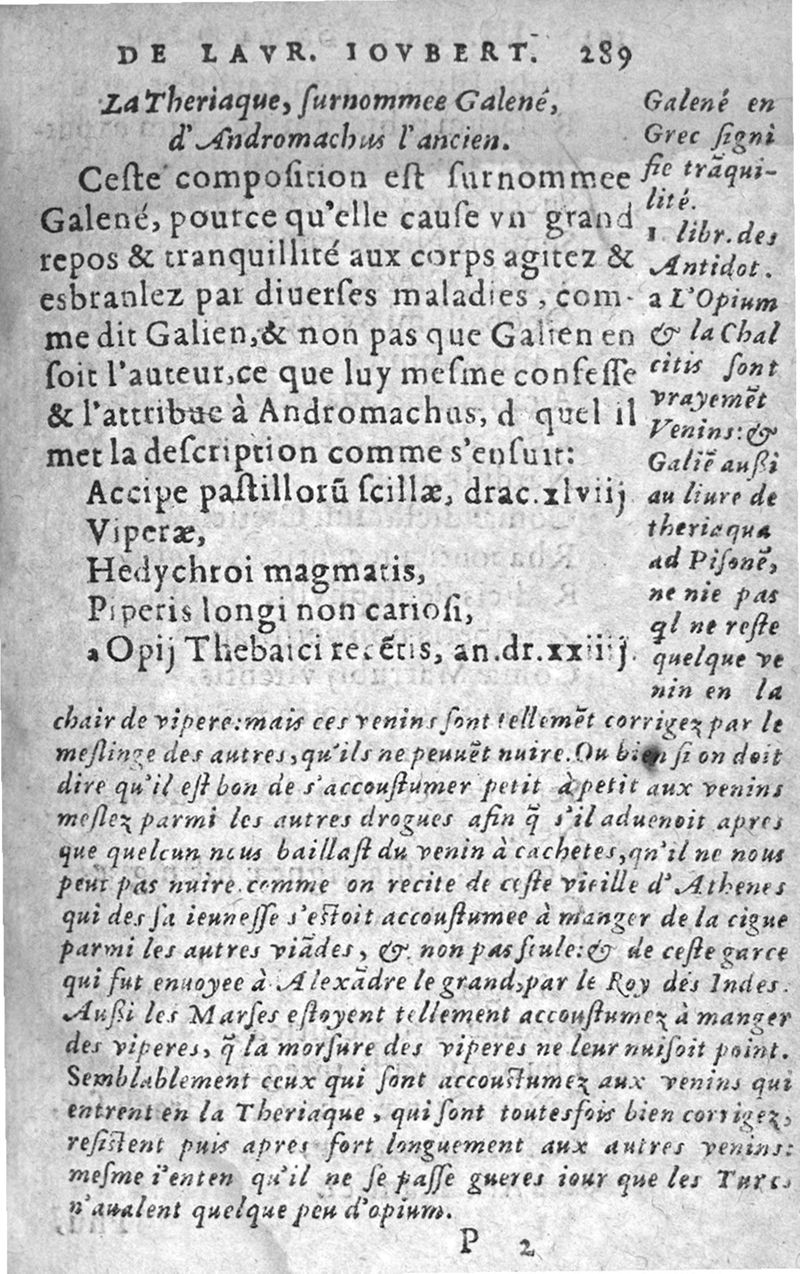 DE LAVR. IOVBERT. 289
La Theriaque, ſurnommee Galené,
d'Andromachus l'ancien.
Ceſte compoſition eſt ſurnommee
Galené, pource qu'elle cauſe vn grand
repos & tranquillité aux corps agitez &
esbranlez par diuerſes maladies, com-
me dit Galien, & non pas que Galien en
ſoit l'auteur, ce que luy meſme confeſſe
& l'attribue à Andromachus, d quel il
met la deſcription comme s'enſuit:
Accipe paſtillorū ſcillæ, drac. xlviij
Viperæ,
Hedychroi magmatis,
Piperis longi non carioſi,
a Opij Thebaici recētis, an. dr. xxiiij.
Galené en
Grec ſigni
fie trāqui-
lité.
1 libr. des
Antidot.
a L'Opium
& la Chal
citis ſont
vrayemēt
Venins: &
Galiē auſſi
au liure de
theriaqua
ad Piſonē,
ne nie pas
ql ne reſte
quelque ve
nin en la
chair de vipere: mais ces venins ſont tellemēt corrigez par le
meſlinge des autres, qu'ils ne peuuēt nuire. Ou bien ſi on doit
dire qu'il eſt bon de s'accouſtumer petit à petit aux venins
meſlez parmi les autres drogues afin q̃ s'il aduenoit apres
que quelcun nous baillaſt du venin à cachetes, qu'il ne nous
peut pas nuire. comme on recite de ceſte vieille d'Athenes
qui des ſa ieuneſſe s'eſtoit accouſtumee à manger de la cigue
parmi les autres viādes, & non pas ſeule: & de ceſte garce
qui fut enuoyee à Alexādre le grand, par le Roy des Indes.
Auſſi les Marſes eſtoyent tellement accouſtumez à manger
des viperes, q̃ la morſure des viperes ne leur nuiſoit point.
Semblablement ceux qui ſont accouſtumez aux venins qui
entrent en la Theriaque, qui ſont toutesfois bien corrigez,
reſiſtent puis apres fort longuement aux autres venins:
meſme i'enten qu'il ne ſe paſſe gueres iour que les Turcs
n'aualent quelque peu d'opium.
P 2